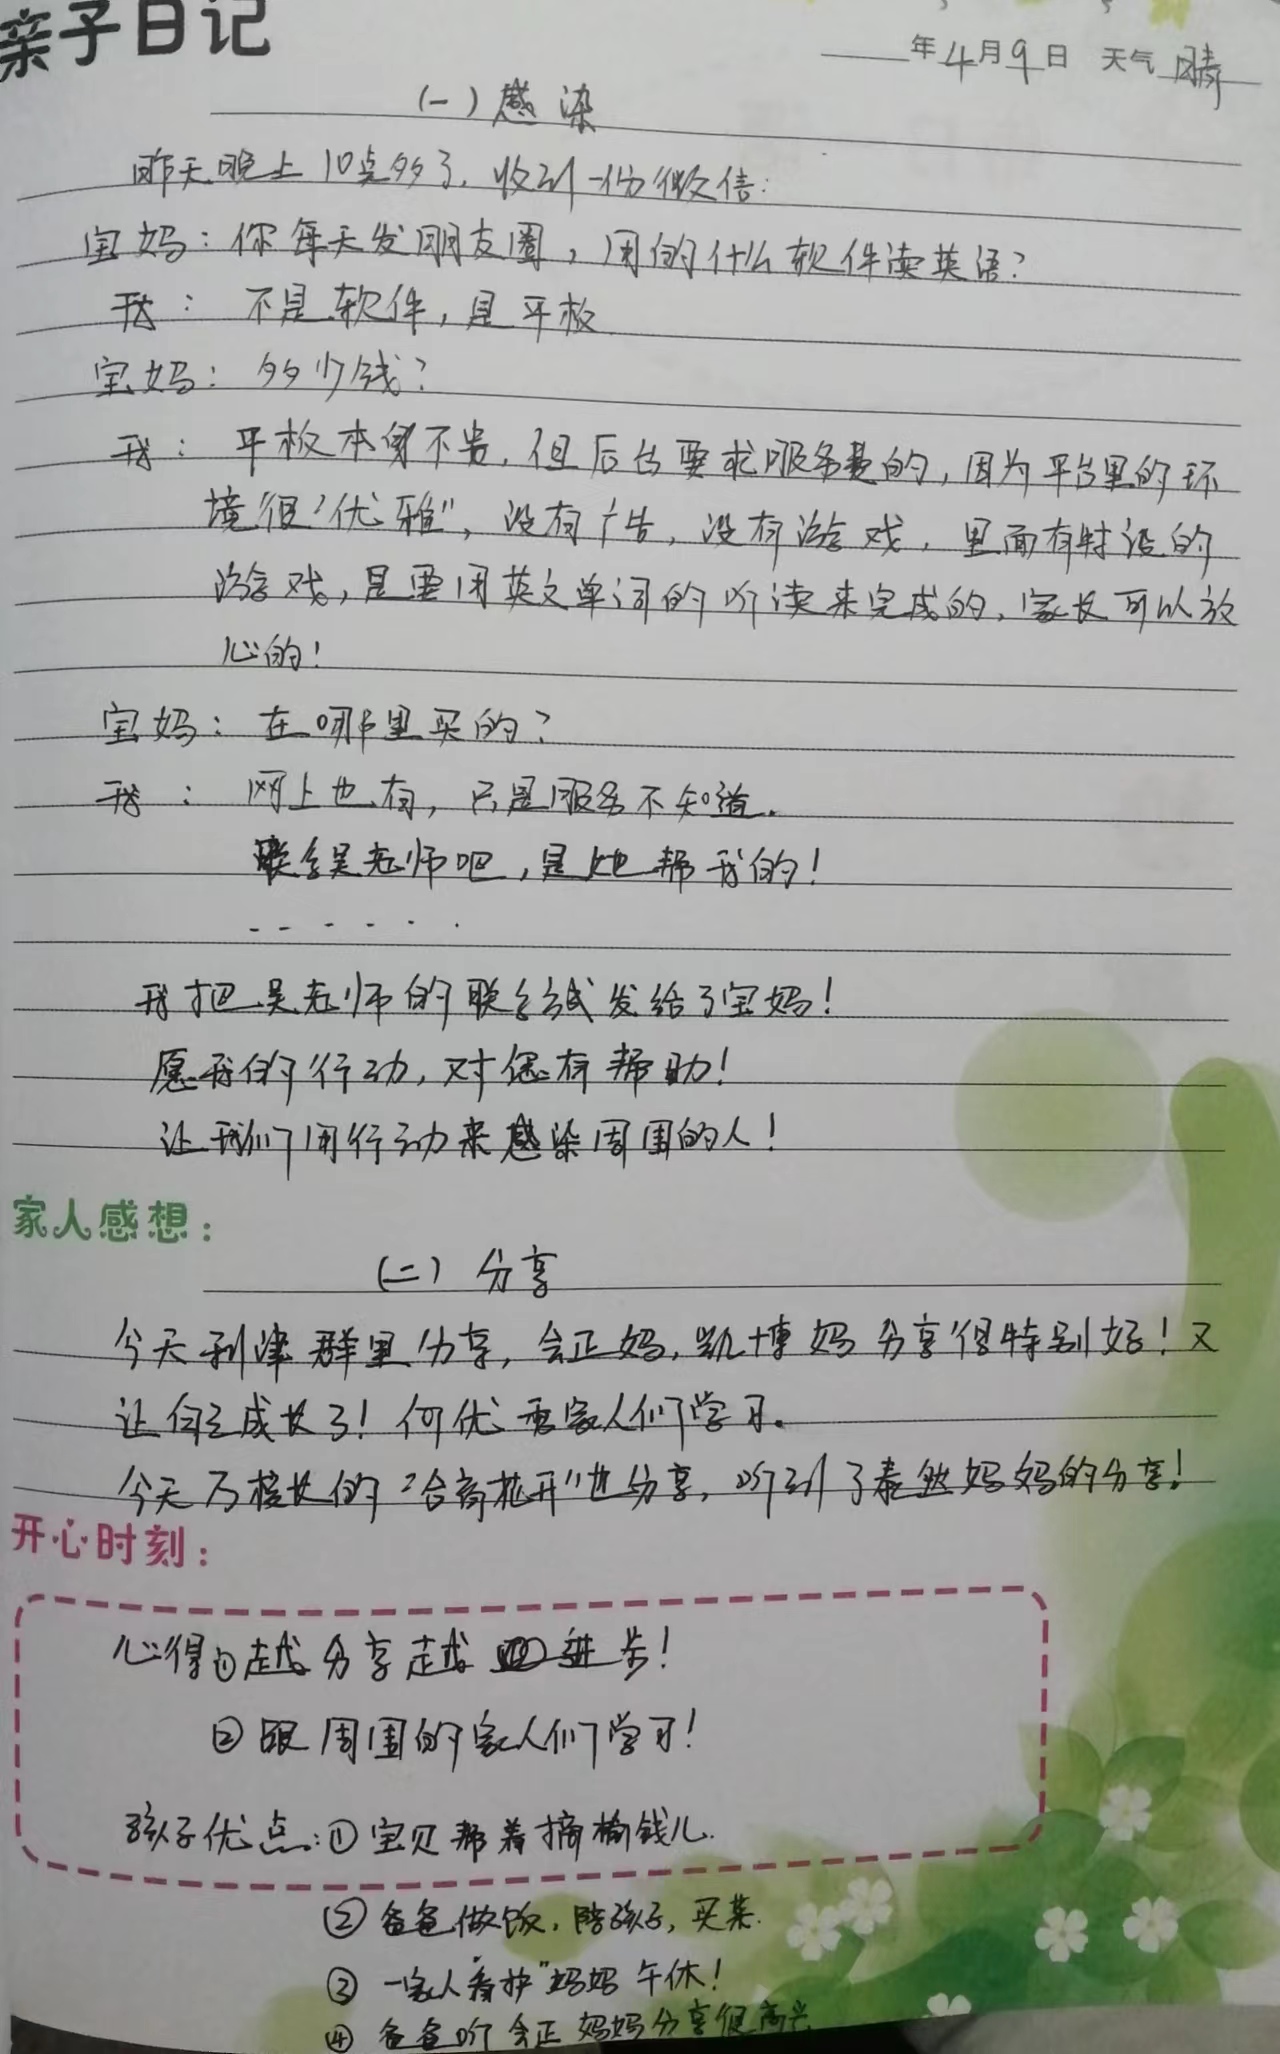 亲子日记
年4月9日 天气 晴
(一)感染
昨天晚上10点多了,收到一份微信:
宝妈:你每天发朋友圈,用的什么软件读英语?
我:不是软件,是平板
宝妈:多少钱?
我:平板本身不贵,但后台要求服务费的,因为平台里的环
境很“优雅”,没有广告,没有游戏,里面有特设的
游戏,是要用英文单词的听读来完成的,家长可以放
心的!
宝妈:在哪里买的?
我:网上也有,只是服务不知道。
联系吴老师吧,是她帮我的!
......
我把吴老师的联系方式发给了宝妈!
愿我的行动,对您有帮助!
让我们用行动来感染周围的人!
家人感想:
(二)分享
今天利津群里分享,会正妈,凯博妈分享得特别好!又
让自己成长了!向优秀家人们学习。
今天万校长的“合商花开”也分享,听到了泰然妈妈的分享!
开心时刻:
心得①越分享越进步!
②跟周围的家人们学习!
孩子优点:①宝贝帮着摘榆钱儿.
②爸爸做饭,陪孩子,买菜.
③一家人看护“妈妈午休!
④爸爸听会正妈妈分享很高兴